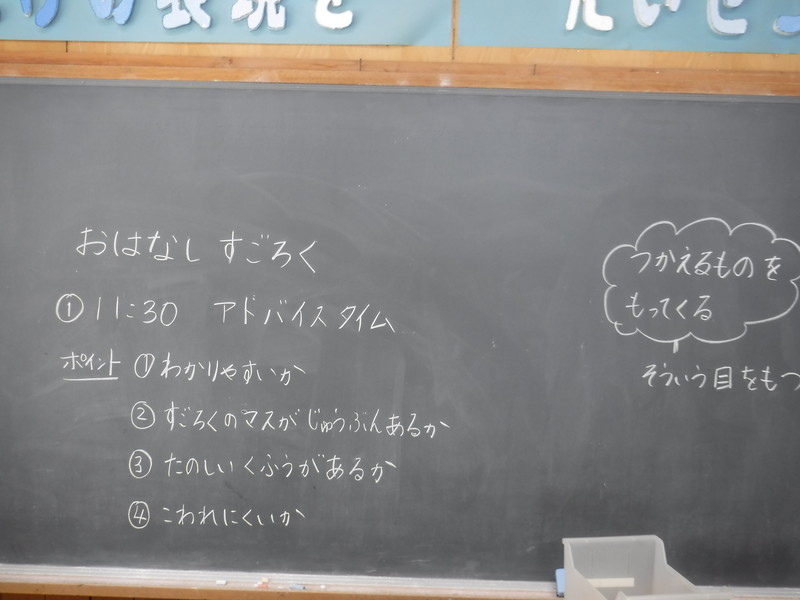 の表現を
おはなし すごろく
① 11:30 アドバイスタイム
ポイント ① わかりやすいか
② すごろくのマスがじゅうぶんあるか
③ たのしいくふうがあるか
④ こわれにくいか
つかえるものを
もってくる
そういう目をもつ